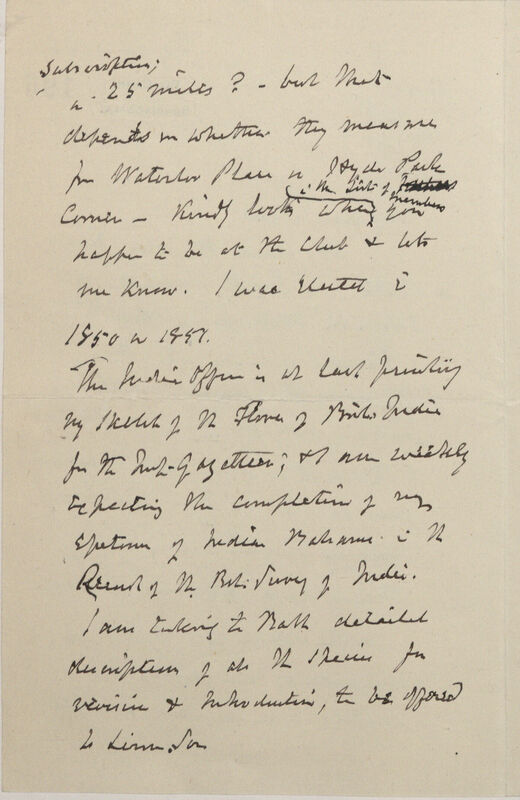 Subscription;
a 25 miles? – but that
depends on whether they measure
from Waterloo Place or Hyde Park
in the List of members
Corner – Kindly look when you
happen to be at the Club & let
me know. I was elected in
1850 or 1851.
The India Office is at last printing
my sketch of the Flora of Brit. India
for the Imp. Gazetteer; & I am weekly
expecting the completion of my
Epitome of Indian Balsams in the
Records of the Bot. Survey of India.
I am taking to Bath detailed
descriptions of all the species for
revision & introduction, to be offered
to Linn. Soc